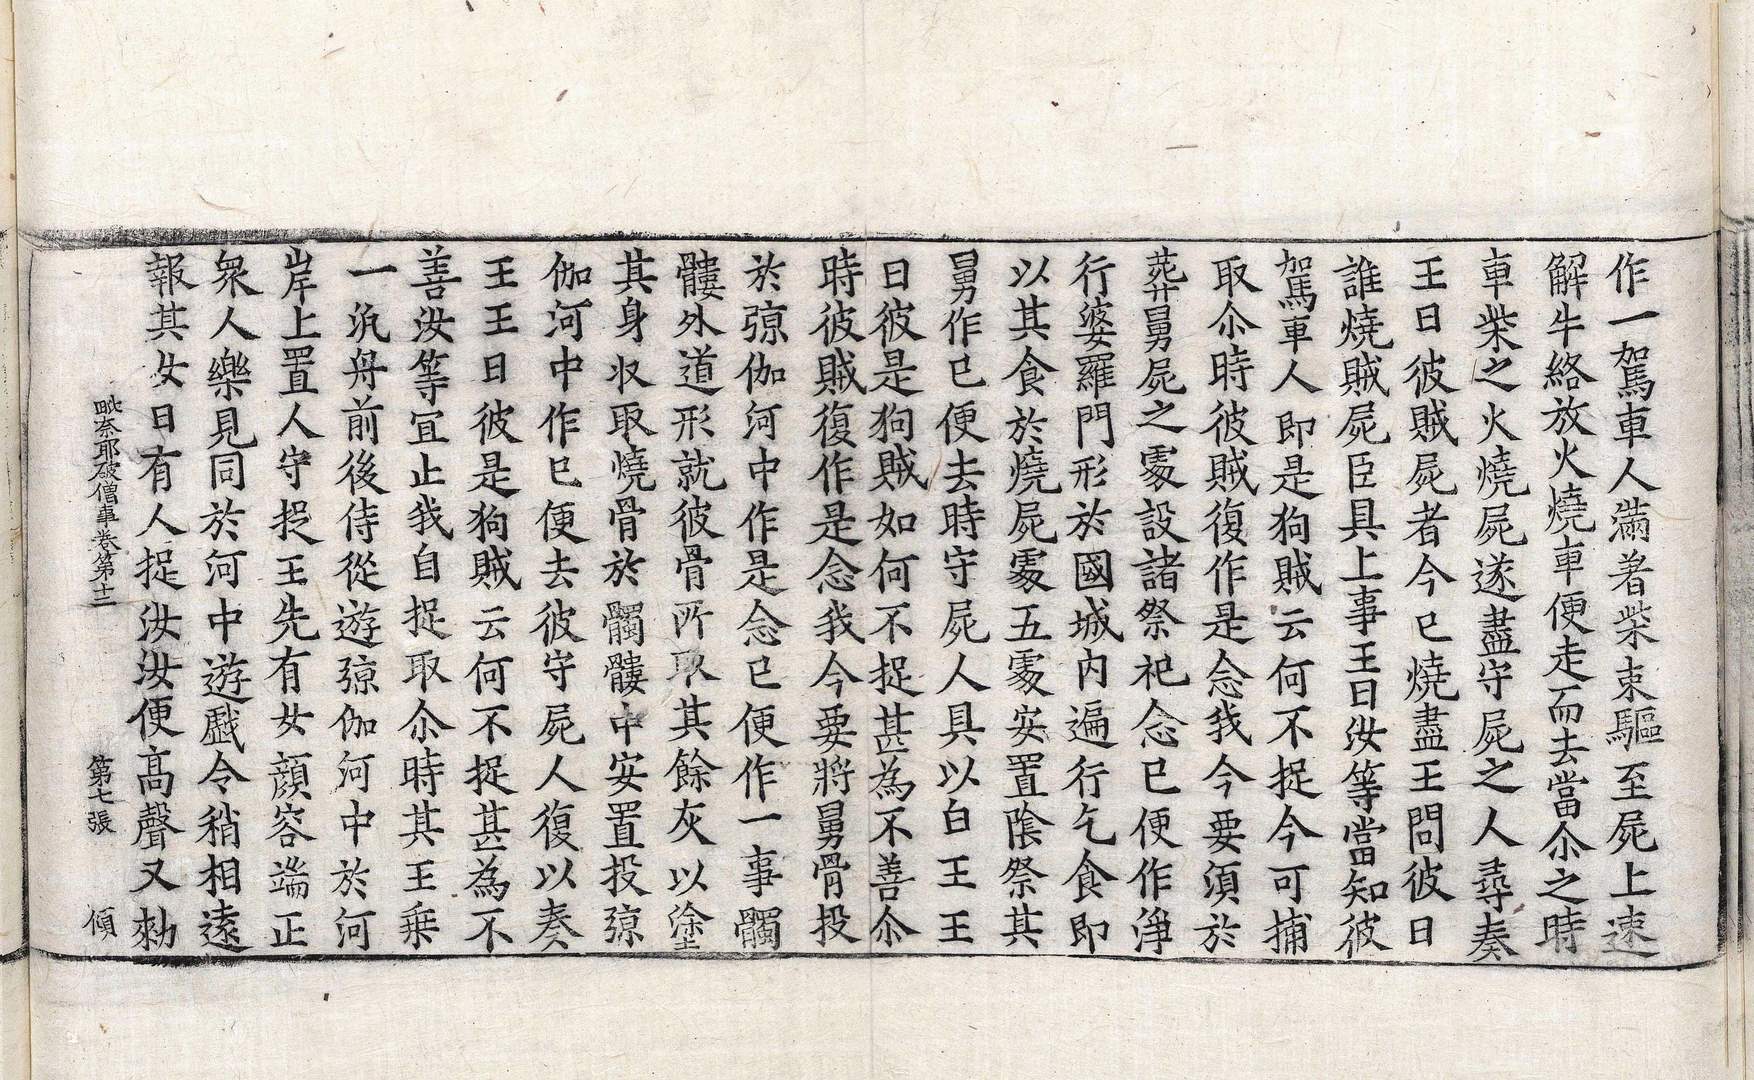 作一駕車人滿著柴束驅至屍上速
解牛絡放火燒車便走而去當尒之時
車柴之火燒屍遂盡守屍之人尋奏
王曰彼賊屍者今已燒盡王問彼曰
誰燒賊屍臣具上事王曰汝等當知彼
駕車人即是狗賊云何不捉今可捕
取尒時彼賊復作是念我今要須於
葬舅屍之䖏設諸祭祀念已便作淨
行婆羅門形於國城内遍行乞食即
以其食於燒屍䖏五䖏安置陰祭其
舅作已便去時守屍人具以白王王
曰彼是狗賊如何不捉甚為不善尒
時彼賊復作是念我今要將舅骨投
於弶伽河中作是念已便作一事髑
髏外道形就彼骨所取其餘灰以塗
其身収取燒骨於髑髏中安置投弶
伽河中作已便去彼守屍人復以奏
王王曰彼是狗賊云何不捉甚為不
善汝等宜止我自捉取尒時其王乗
一汎舟前後侍從遊弶伽河中於河
岸上置人守捉王先有女顔容端正
衆人樂見同於河中遊戲令稍相遠
報其女曰有人捉汝汝便髙聲又勑
毗奈耶破僧事卷第十二 第七張 傾